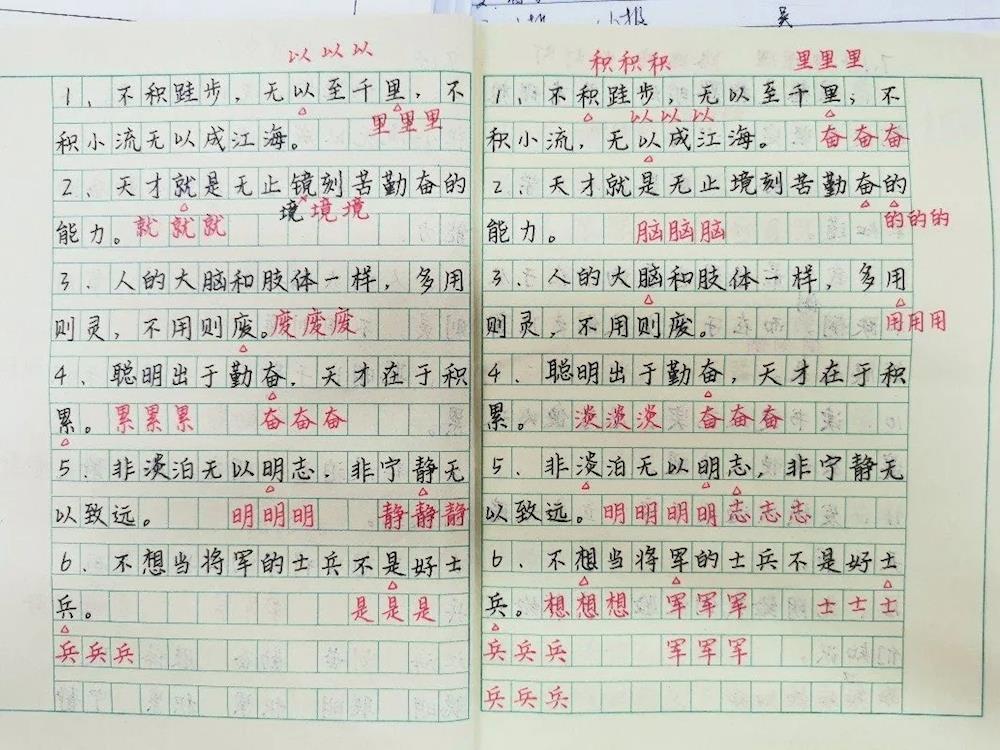 吴
以以以
1、不积跬步，无以至千里，不
里里里
积小流无以成江海。
2、天才就是无止镜刻苦勤奋的
境境境
能力。就就就
3．人的大脑和肢体一样，多用
则灵，不用则废。废废废
4．聪明出于勤奋．天才在于积
累。累累累 奋奋奋
5．非淡泊无以明志．非宁静无
以致远。明明明 静静静
6．不想当将军的士兵不是好士
兵。是是是
兵兵兵
积积积 里里里
1、不积跬步，无以至千里；不
以以以
积小流，无以成江海。奋奋奋
2、天才就是无止境刻苦勤奋的
的的的
能力。脑脑脑
3．人的大脑和肢体一样，多用
则灵，不用则废。用用用
4．聪明出于勤奋，天才在于积
累。淡淡淡 奋奋奋
5．非淡泊无以明志，非宁静无
以致远。明明明明志志志
6．不想当将军的士兵不是好士
兵。想想想 军军军 士士士
兵兵兵 军军军
兵兵兵